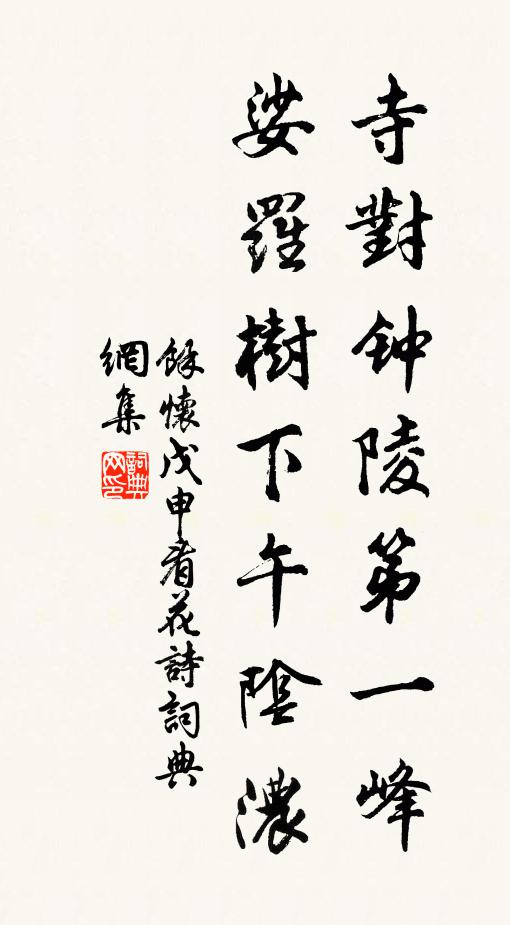 寺對钟陵第一峰
娑羅樹下午陰濃
餘懷戊申看花詩詞典
網集
詞典网印